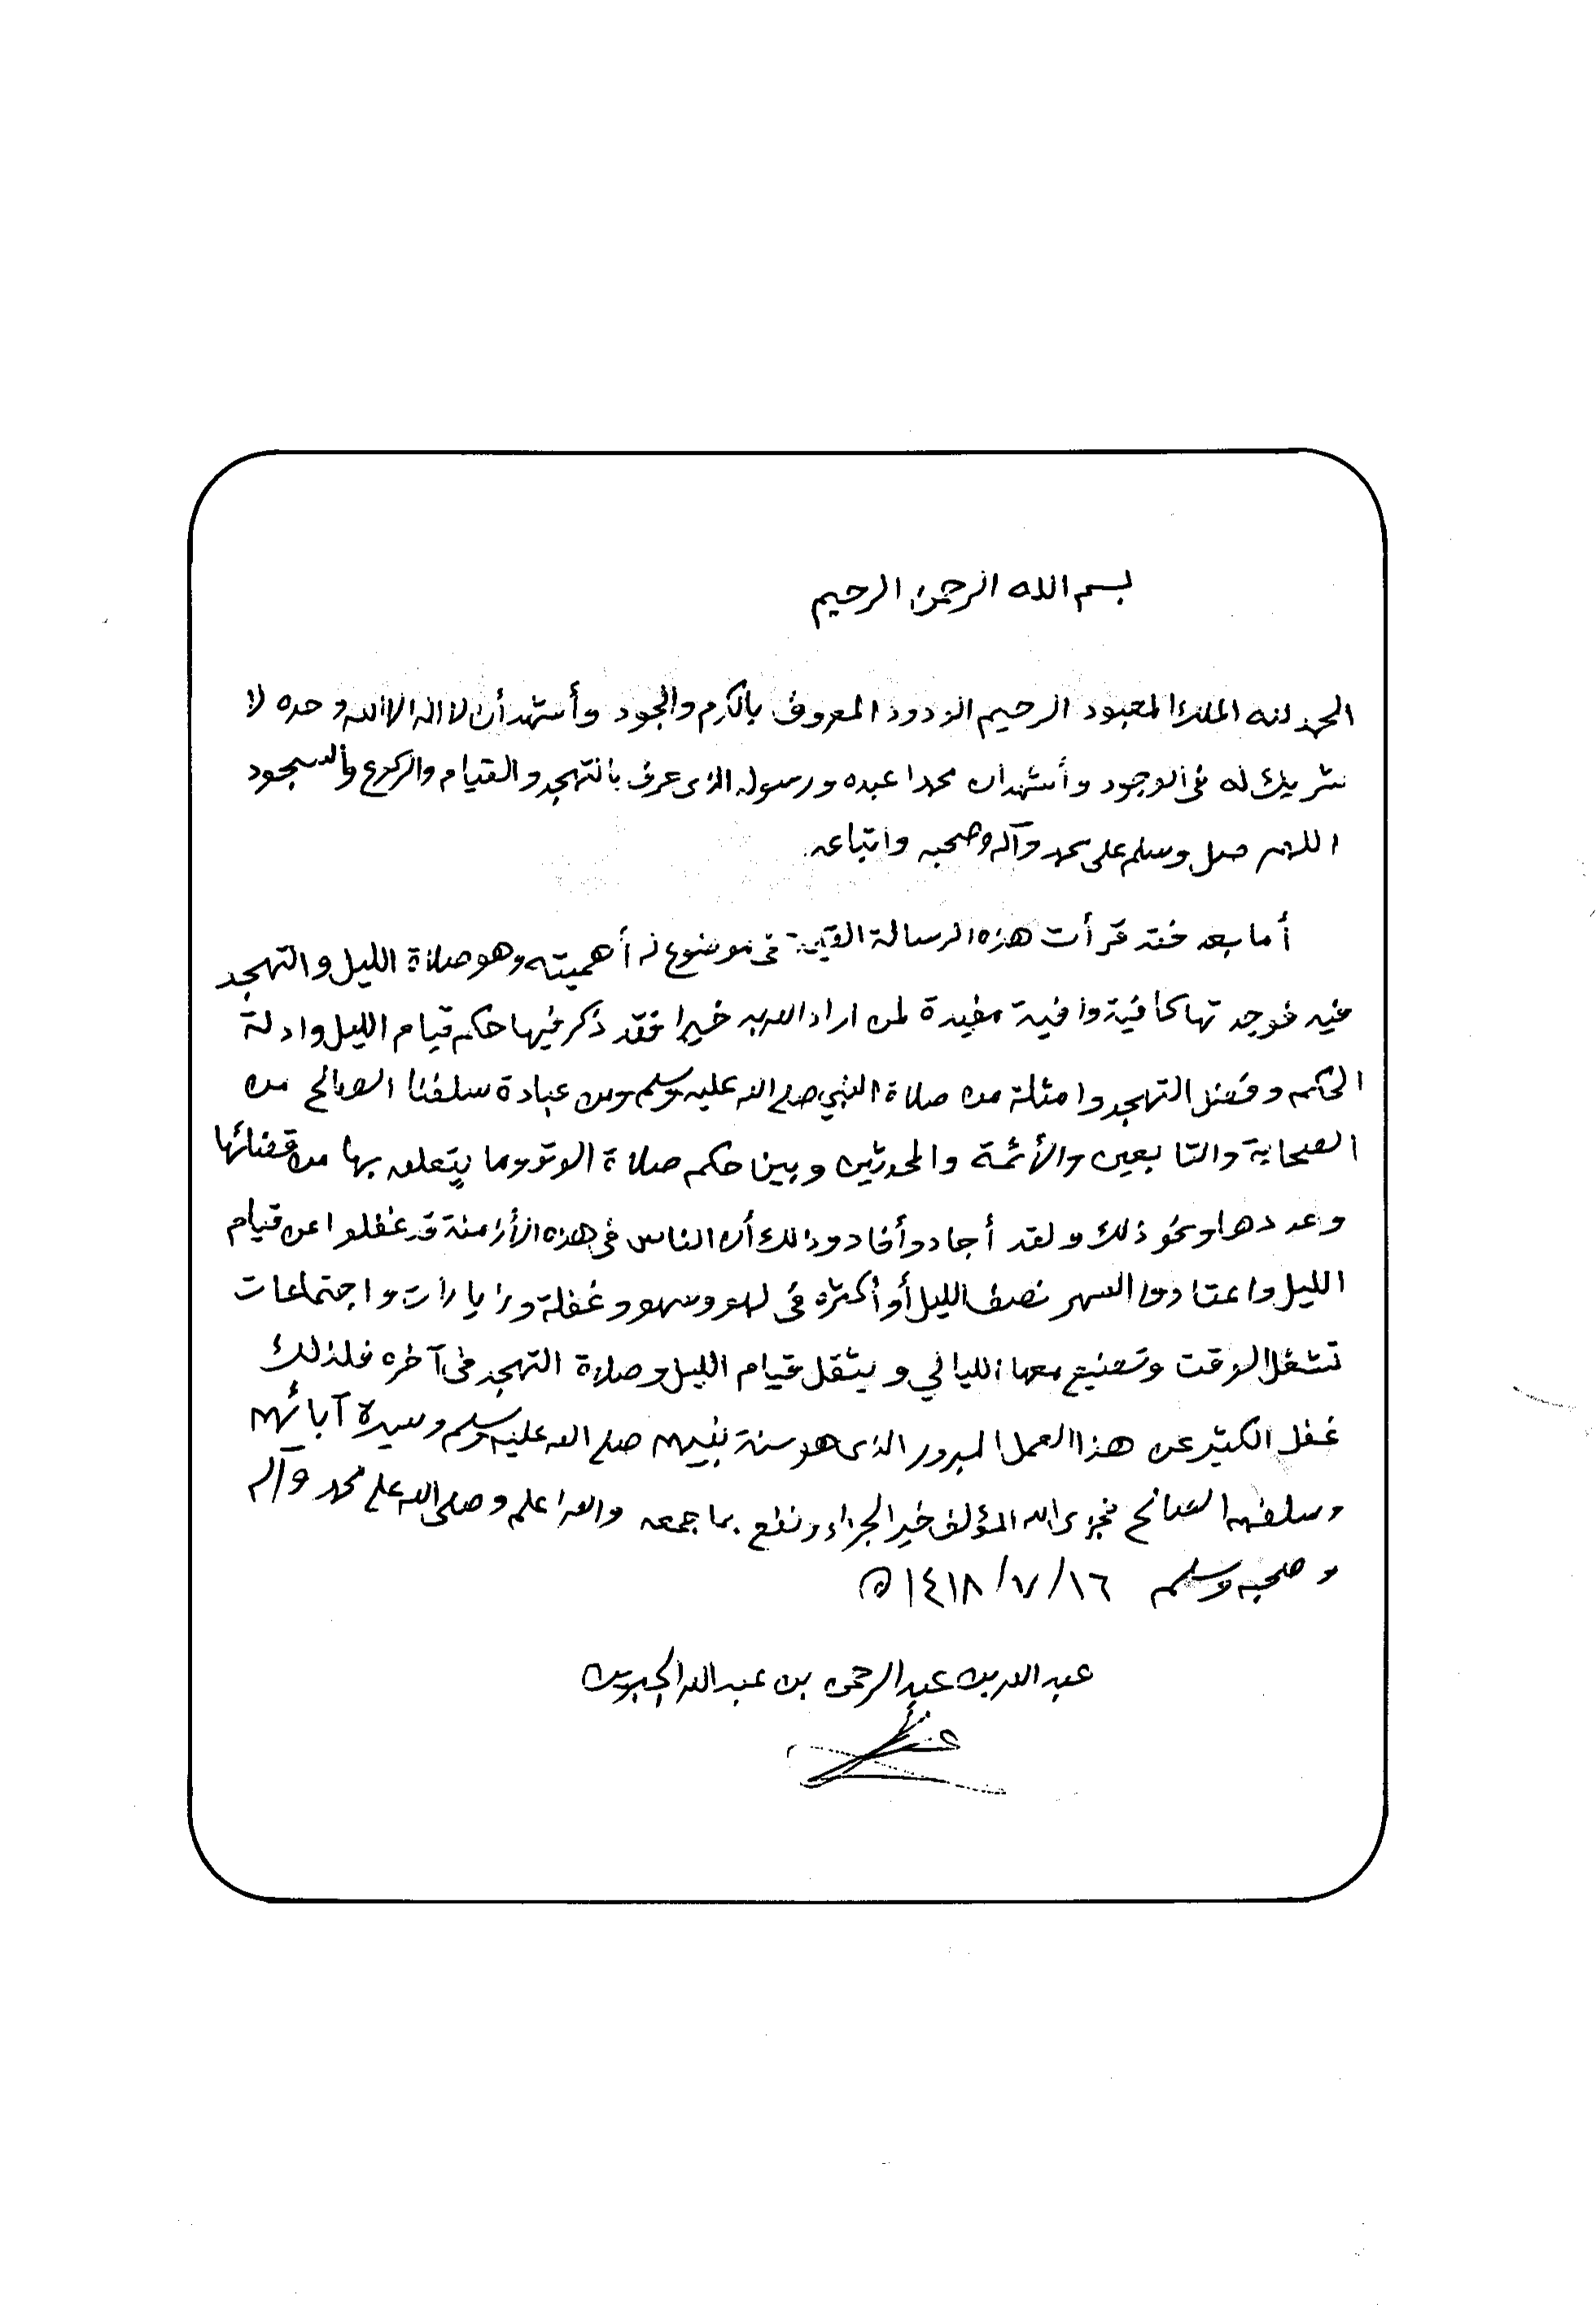 بسم الله الرحمن الرحيم
الحمد لله الملك المعبود الرحيم الودود المعروف بالكرم والجود وأشهد أن لا اله الا الله وحده لا
شريك له في الوجود وأشهد أن محمدا عبده ورسوله الذي عرف بالتهجد والقيام والركوع والسجود
اللهم صل وسلم على محمد وآله وصحبه واتباعه
أما بعد فقد قرأت هذه الرسالة القيمة في موضوع له أهميته وهو صلاة الليل والتهجد
فيه فوجدتها كافية وافية مفيدة لمن اراد الله به خيرا فقد ذكر فيها حكم قيام الليل وادلة
الحكم وفضل التهجد وامثلة من صلاة النبي صلى الله عليه وسلم ومن عبادة سلفنا الصالح من
الصحابة والتابعين والأئمة والمحدثين وبين حكم صلاة الوتر وما يتعلق بها من قضائها
وعددها ونحو ذلك ولقد أجاد وأفاد وذلك أن الناس في هذه الأزمنة قد غفلوا عن قيام
الليل واعتادوا السهر نصف الليل أو أكثره في لهو وسهو وغفلة وزيارات واجتماعات
تشغل الوقت وتضيع معها الليالي ويثقل قيام الليل وصلاة التهجد في آخره فلذلك
غفل الكثير عن هذا العمل المبرور الذي هو سنة نبيهم صلى الله عليه وسلم وسيرة آبائهم
وسلفهم الصالح فجزى الله المؤلف خير الجزاء ونفع بما جمعه والله اعلم وصلى الله على محمد وآله
وصحبه وسلم ١٦/٧/١٤١٨ه
عبد الله بن عبد الرحمن بن عبد الله الجبرين